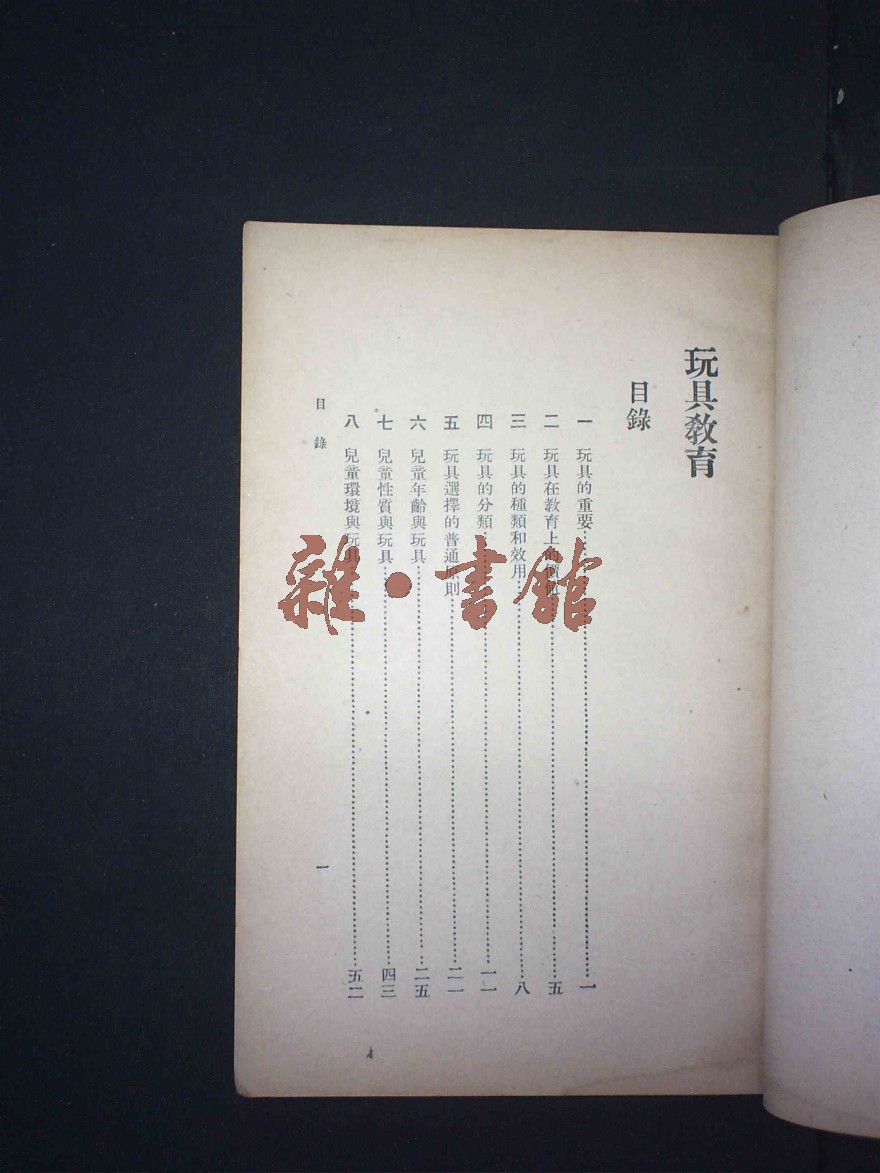 玩具教育
目錄
一 玩具的重要……一
二 玩具在教育上的……五
三 玩具的種類和效用……八
四 玩具的分類……一一
五 玩具選擇的普通原則……二一
六 兒童年齡與玩具……二五
七 兒童性質與玩具……四三
八 兒童環境與玩具……五二
目錄
一
雜·書館